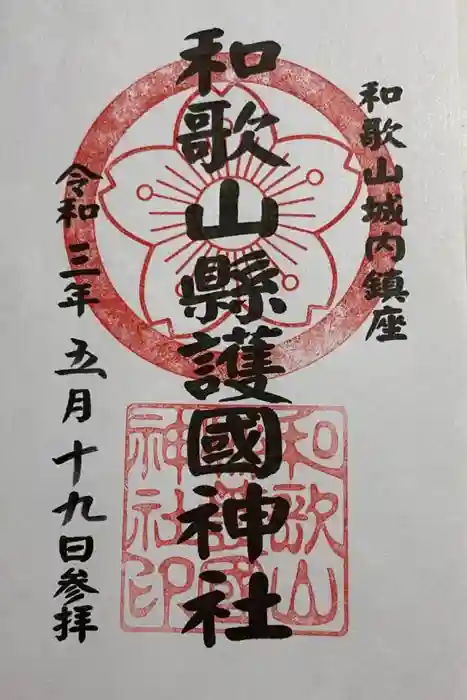 和歌山城内鎮座
和歌山縣護國神社
令和三年五月十九日参拝
和歌山
護國
神社印